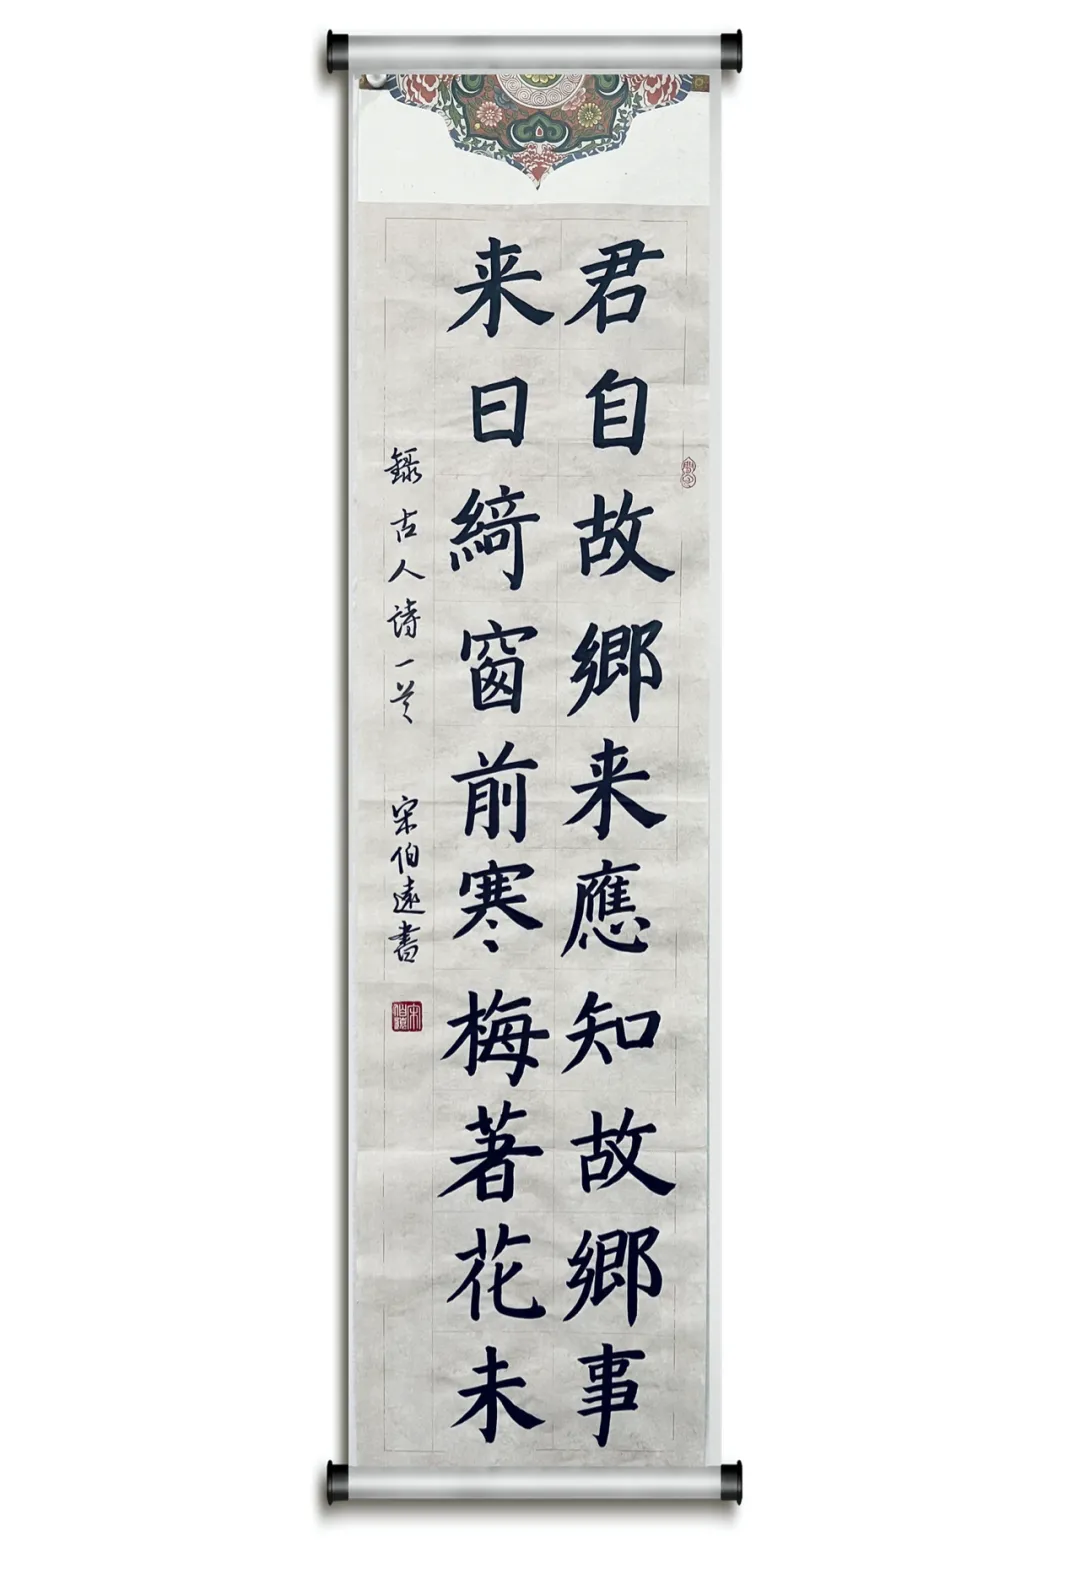 君自故鄉来應知故鄉事
来日綺窗前寒梅著花未
錄古人詩一首
宋伯遠書